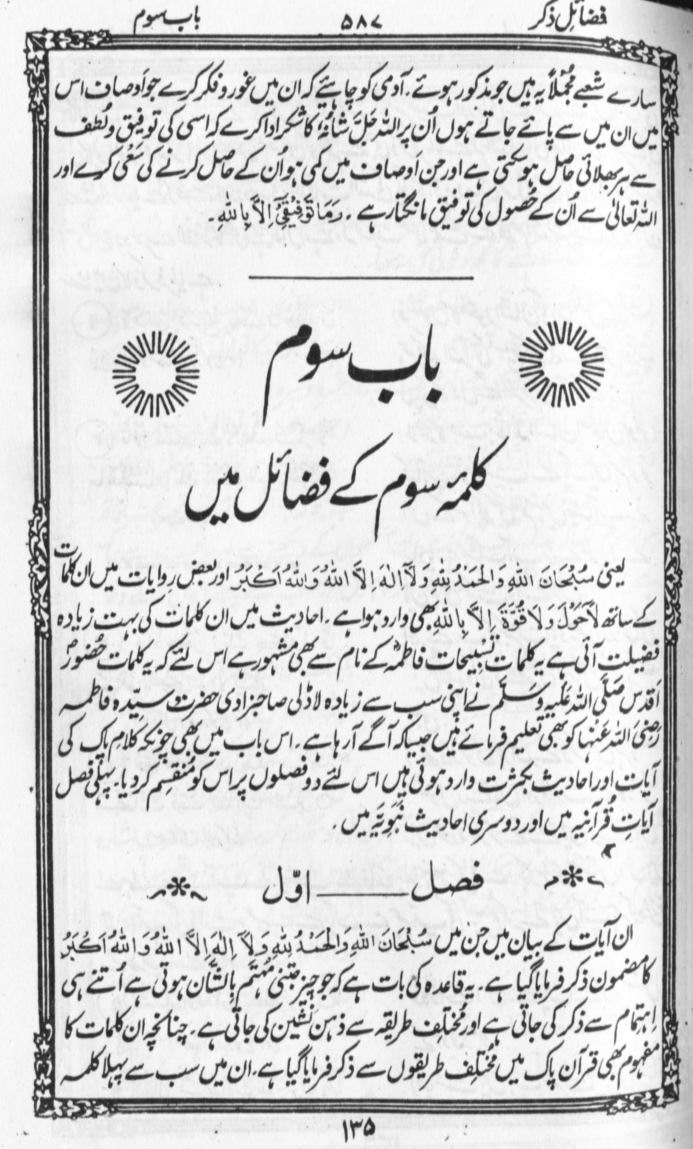 فضائل ذکر
۵۸۷
باب سوم
سارے شعبے مجملاً یہ ہیں جو مذکور ہوئے۔ آدمی کو چاہیئے کہ ان میں غور و فکر کرے جو اوصاف اس
میں ان میں سے پائے جاتے ہوں اُن پر اللہ جل شانہٗ کا شکر ادا کرے کہ اسی کی توفیق و لُطف
سے ہر بھلائی حاصل ہو سکتی ہے اور جن اَوصاف میں کمی ہو ان کے حاصل کرنے کی سَعی کرے اور
اللہ تعالیٰ سے اُن کے حُصول کی توفیق مانگتا رہے۔ وَمَا تَوْفِيْقِيْٓ اِلَّا بِاللهِ۔
باب سوم
کلمۂ سوم کے فضائل میں
یعنی سُبْحَانَ اللهِ وَالْحَمْدُ لِلّٰهِ وَلَآ اِلٰهَ اِلَّا اللهُ وَاللهُ اَكْبَرُ اور بعض روایات میں ان کلمات
کے ساتھ لَاحَوْلَ وَلَا قُوَّةَ اِلَّا بِاللهِ بھی وارد ہوا ہے۔ احادیث میں ان کلمات کی بہت زیادہ
فضیلت آئی ہے یہ کلمات تسبیحات فاطمہؓ کے نام سے بھی مشہور ہے اس لئے کہ یہ کلمات حُضورِ
اَقدس صَلَّی اللہ عَلیہ وسلم نے اپنی سب سے زیادہ لاڈلی صاحزادی حضرت سیدہ فاطمہ
رَضِیَ اللہ عَنہا کو بھی تعلیم فرمائے ہیں جیسا کہ آگے آ رہا ہے۔ اس باب میں بھی چونکہ کلام پاک کی
آیات اور احادیث بکثرت وارد ہوئی ہیں اس لئے دو فصلوں پر اس کو منقسم کر دیا۔ پہلی فصل
آیاتِ قُرآنیہ میں اور دوسری احادیث نَبَوِیَّہ میں
فصل ــــــ اوّل
ان آیات کے بیان میں جن میں سُبْحَانَ اللهِ وَالْحَمْدُ لِلّٰهِ وَلَآ اِلٰهَ اِلَّا اللهُ وَاللهُ اَكْبَرُ
کا مضمون ذکر فرمایا گیا ہے۔ یہ قاعدہ کی بات ہے کہ جو چیز جتنی مُہتَم بِالشَّان ہوتی ہے اُتنے ہی
اِہتمام سے ذکر کی جاتی ہے اور مُختلِف طریقہ سے ذہن نَشین کی جاتی ہے۔ چنانچہ ان کلمات کا
مفہوم بھی قرآن پاک میں مُختلِف طریقوں سے ذکر فرمایا گیا ہے۔ ان میں سب سے پہلا کلمہ
۱۳۵